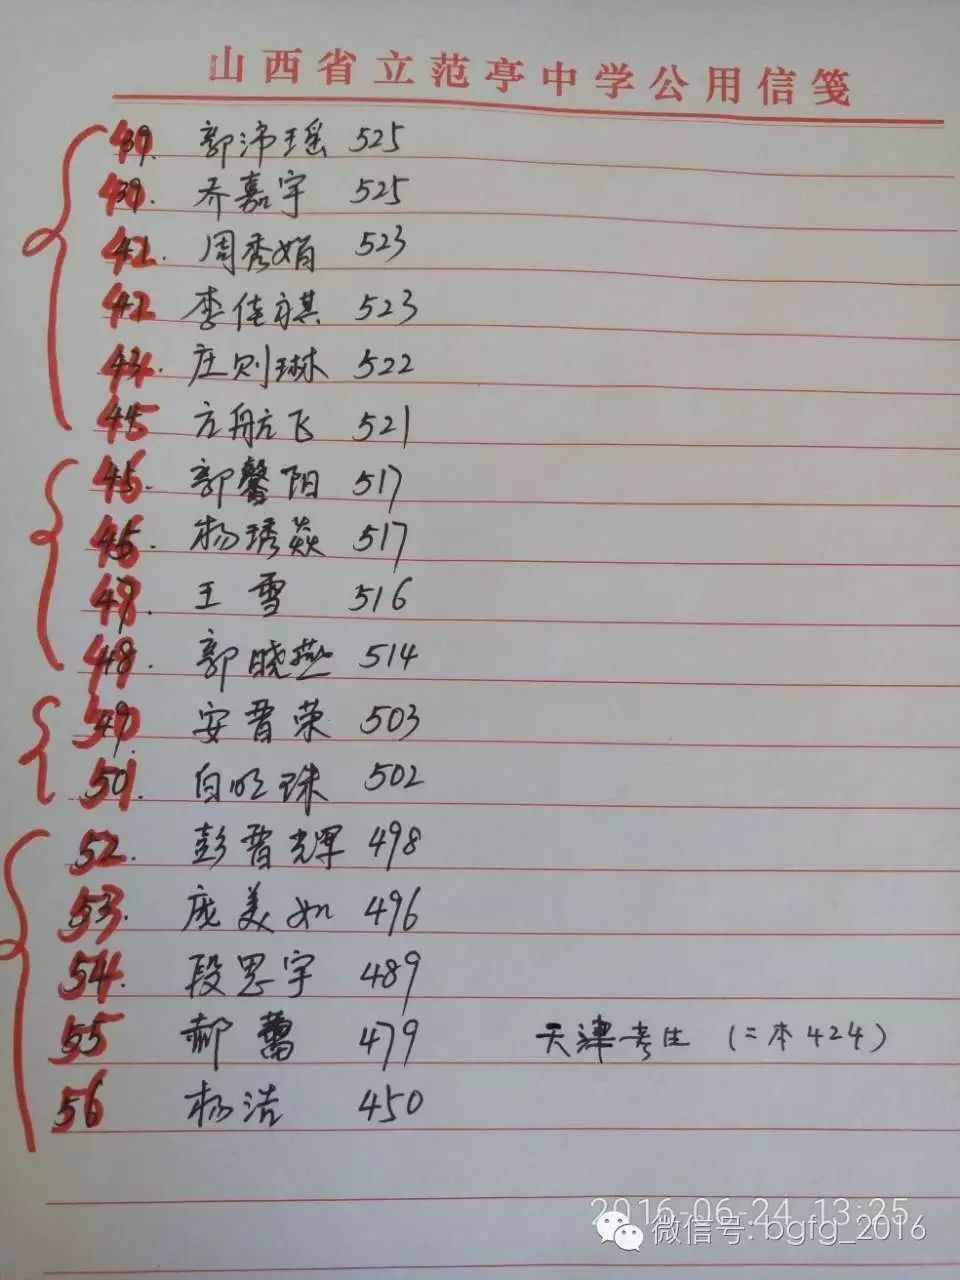 山西省立范亭中学公用信笺
郭沛瑶 525
乔嘉宇 525
周秀娟 523
李佳祺 523
庄则琳 522
方航飞 521
郭馨阳 517
杨琇焱 517
王雪 516
郭晓燕 514
安晋荣 503
50. 白明珠 502
52. 彭晋輝 498
53. 庞美如 496
54. 段思宇 489
55 郝蕾 479 天津考生 (二本424)
56 杨洁 450
2016-06-24 13:25
微信号: bgfg_2016